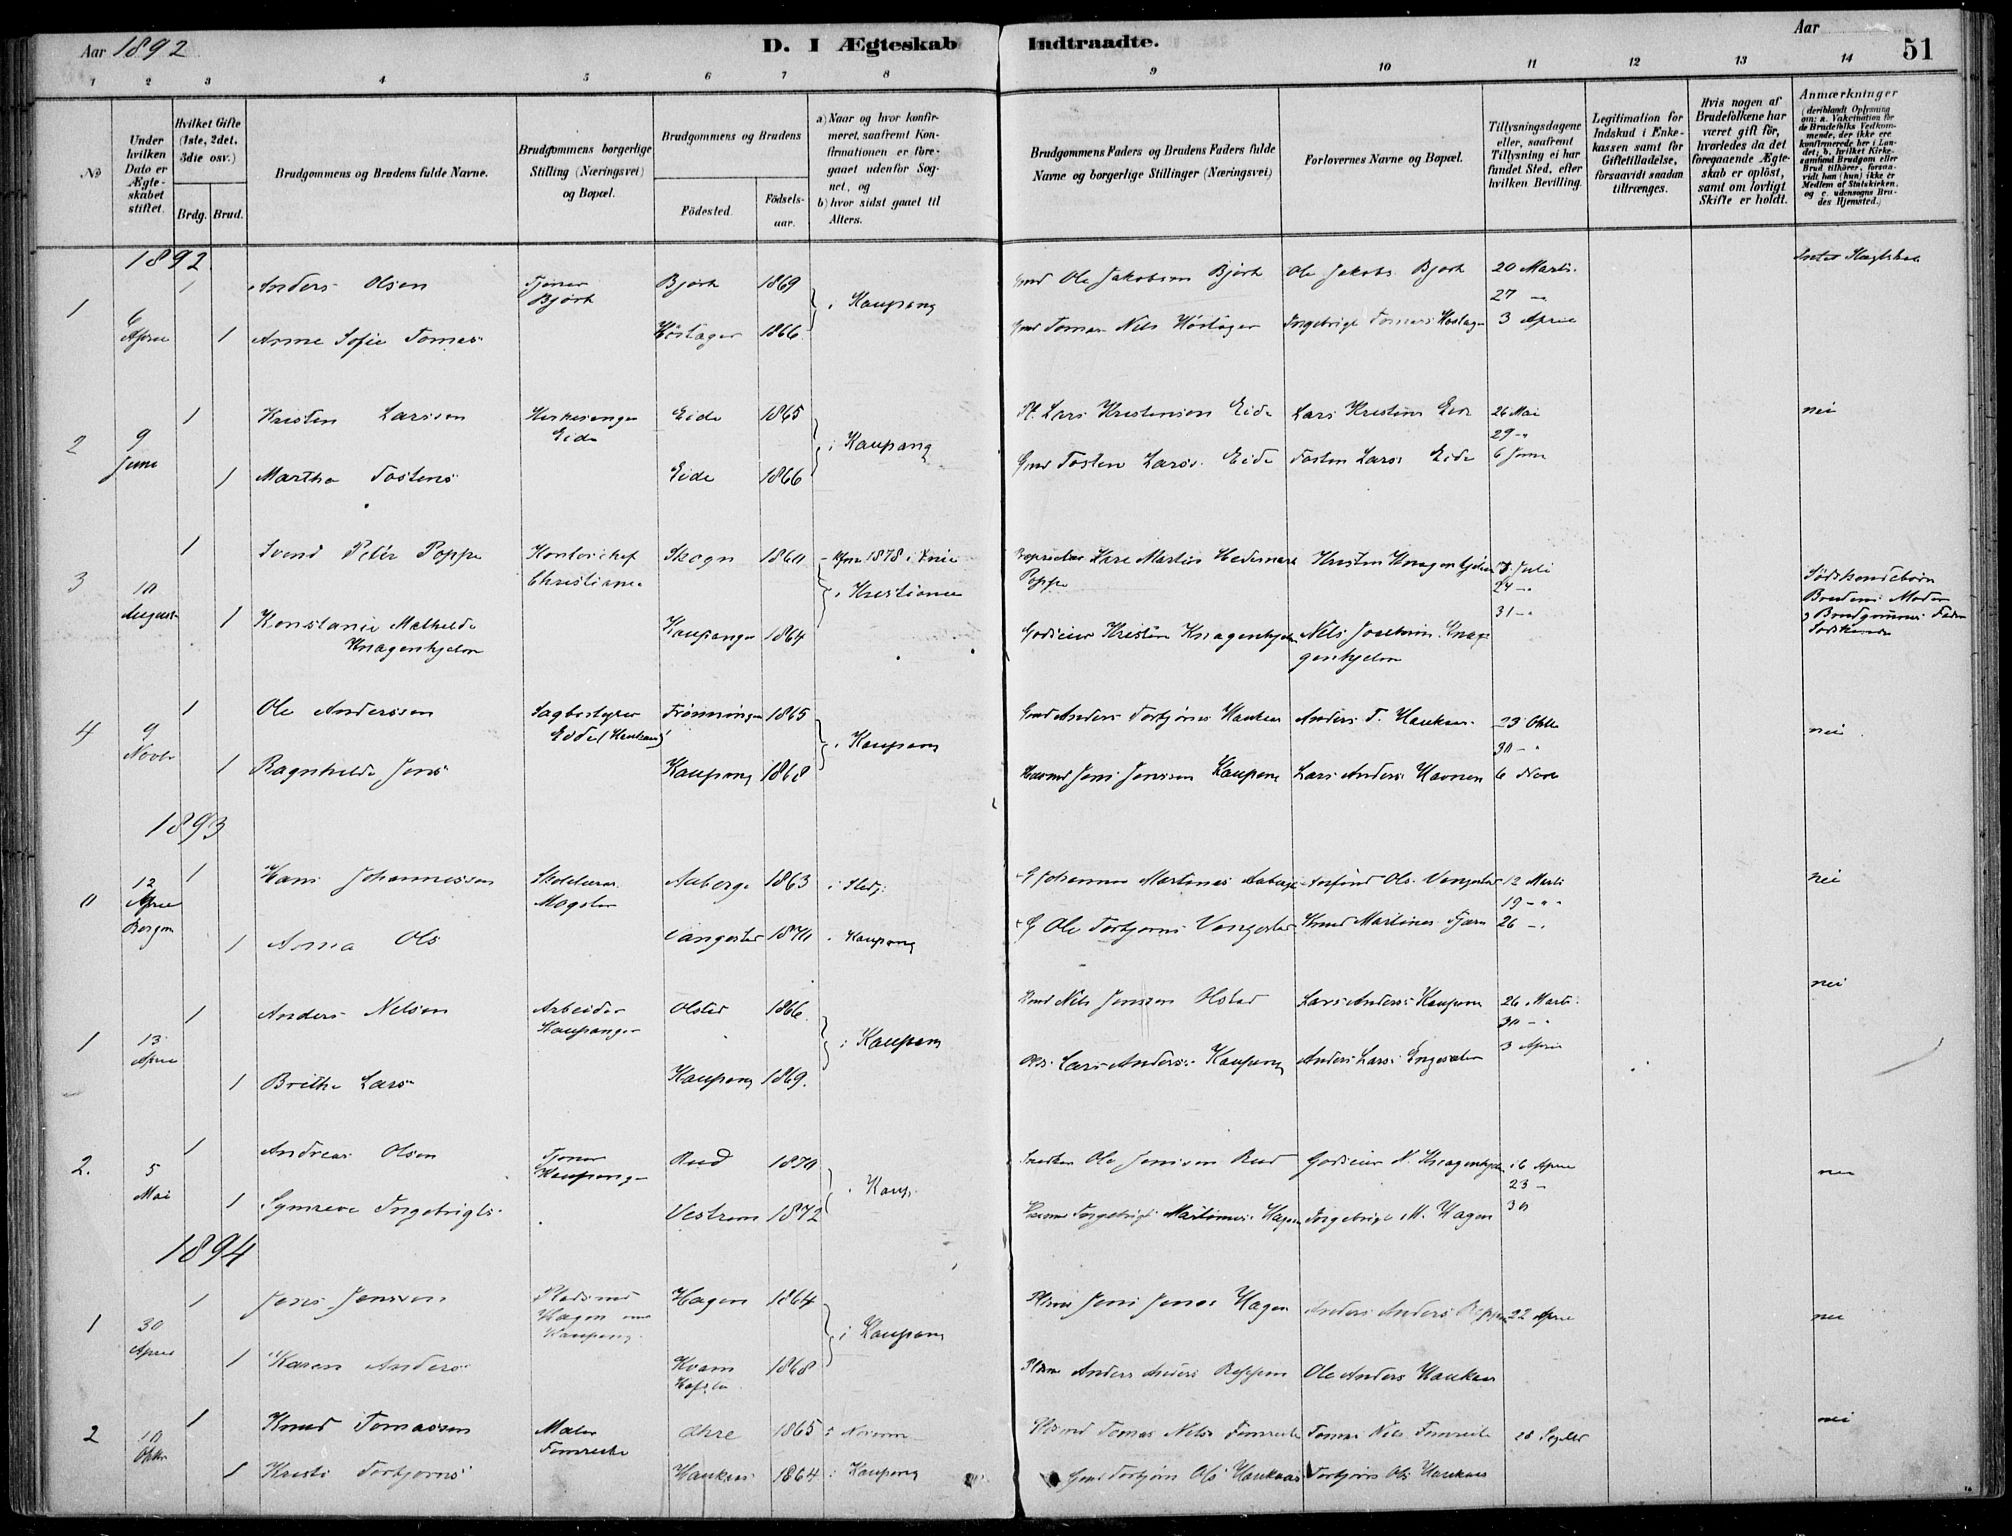 Aar 1892
D. I Ægteskab Indtraadte.
Aar
51
1 2 3 4 5 6 7 8 9 10 11 12 13 14
No
Under hvilken Dato er Ægteskabet stiftet.
Hvilket Gifte (1ste, 2det, 3die osv.)
Brdg. Brud.
Brudgommens og Brudens fulde Navne.
Brudgommens borgerlige Stilling (Næringsvei) og Bopæl.
Brudgommens og Brudens
Födested. Födselsaar.
a) Naar og hvor konfirmeret, saafremt Konfirmationen er foregaaet udenfor Sognet, og
b) hvor sidst gaaet til Alters.
Brudgommens Faders og Brudens Faders fulde Navne og borgerlige Stillinger (Næringsvei)
Forlovernes Navne og Bopæl.
Tillysningsdagene eller, saafremt Tillysning ei har fundet Sted, efter hvilken Bevilling.
Legitimation for Indskud i Enkekassen samt for Giftetilladelse, forsaavidt saadan tiltrænges.
Hvis nogen af Brudefolkene har været gift för, hvorledes da det foregaaende Ægteskab er oplöst, samt om lovligt Skifte er holdt.
Anmærkninger (deriblandt Oplysning om: a. Vakcination for de Brudefolks Vedkommende, der ikke ere konfirmerede her i Landet; b. hvilket Kirkesamfund Brudgom eller Brud tilhörer, forsaavidt han (hun) ikke er Medlem af Statskirken, og c. udensogns Brudes Hjemsted.)
1892
1 6 April 1 Anders Olsen Tjener Bjørk Bjørk 1869 i Kaupang Gmd Ole Jakobsen Bjørk Ole Jakobs Bjørk 20 Marts
27 -"-
1 Anne Sofie Tomas Høstager 1866 Gmd Tomas Nils Høstager Ingebrigt Tomas Høstager 3 April
2 9 Juni 1 Kristen Larssen Eide Eide 1865 i Kaupang Lars Kristensen Eide Lars Kristens Eide 26 Mai nei
29 -"
1 Martha Tostens Eide 1866 Gmd Tosten Larss. Eide Tosten Larss Eide 6 Juni
3 10 August 1 Svend Peter Poppe Kontorchef Christiania Skogn 1860 1878 i Kristiania Martin Hedemark Poppe Kristen Knagenhjelm Juli
24 -"
31 -"
Sødskendebørn
Brudens Moder
og Brudgommens Fader
Sødskende
1 Konstanse Mathilde Knagenhjelm Kaupanger 1864 Godseier Kristen Knagenhjelm Nils Joachim Knagenhjelm
4 9 Novbr 1 Ole Anderssen Sagbestyrer Eide (Haukaas) Frønningen 1865 i Kaupang Gmd Anders Torbjørns Haukaas Anders T. Haukaas 23 Oktb nei
30 -"
1 Ragnhilde Jens Kaupang 1868 Husmd Jens Jenssen Kaupang Lars Anders Havnen 6 Novb
1893
0 12 April Bergen 1 Hans Johannessen Skolelærer Aaberge 1863 i Sted. G Johannes Martinus Aaberge Anfind Ols. Vangestad 12 Marts nei
19 - " "
1 Anna Ols Vangestad 1870 i Kaupang G Ole Torbjørns Vangestad Knud Martinus Fjærn 26 -"
1 13 April 1 Anders Nilsen Arbeider Kaupanger Olstad 1866 i Kaupang Hmd Nils Jenssen Olstad Lars Anders Kaupang 26 Marts nei
30 - "
1 Brithe Lars Kaupang 1869. Lars Anders Kaupang Anders Lars Engesæter 3 April
2. 5 Mai 1 Andreas Olsen Tjener Kaupang Rud 1870 i Kaup. Snedker Ole Jenssen Rud Godseier N. Knagenhjelm 16 April nei
23 -
1 Synneve Ingebrigts Vestrem 1872 Ingebrigt Martinus Hagen Ingebrigt M. Hagen 30
1894
1 30 April 1 Jens Jenssen Pladsmd Hagen Kaupang Hagen 1864 i Kaupang Plsmd Jens Jenss Hagen Anders Anders Reppen 22 April nei
1 Karen Anders Kvam Hafslo 1868 Plsmd Anders Anders Reppen Ole Anders Haukaas
2 10 Oktbr 1 Knud Tomassen Maler Timreite Ahre 1865 i Norum Plsmd Tomas Nils Timreite Tomas Nils Timreite 28 Septbr nei
1 Kristi Torbjørns Haukaas 1864 i Kaupang Gmd Torbjørn Ols Haukaas Torbjørn Ols Haukaas